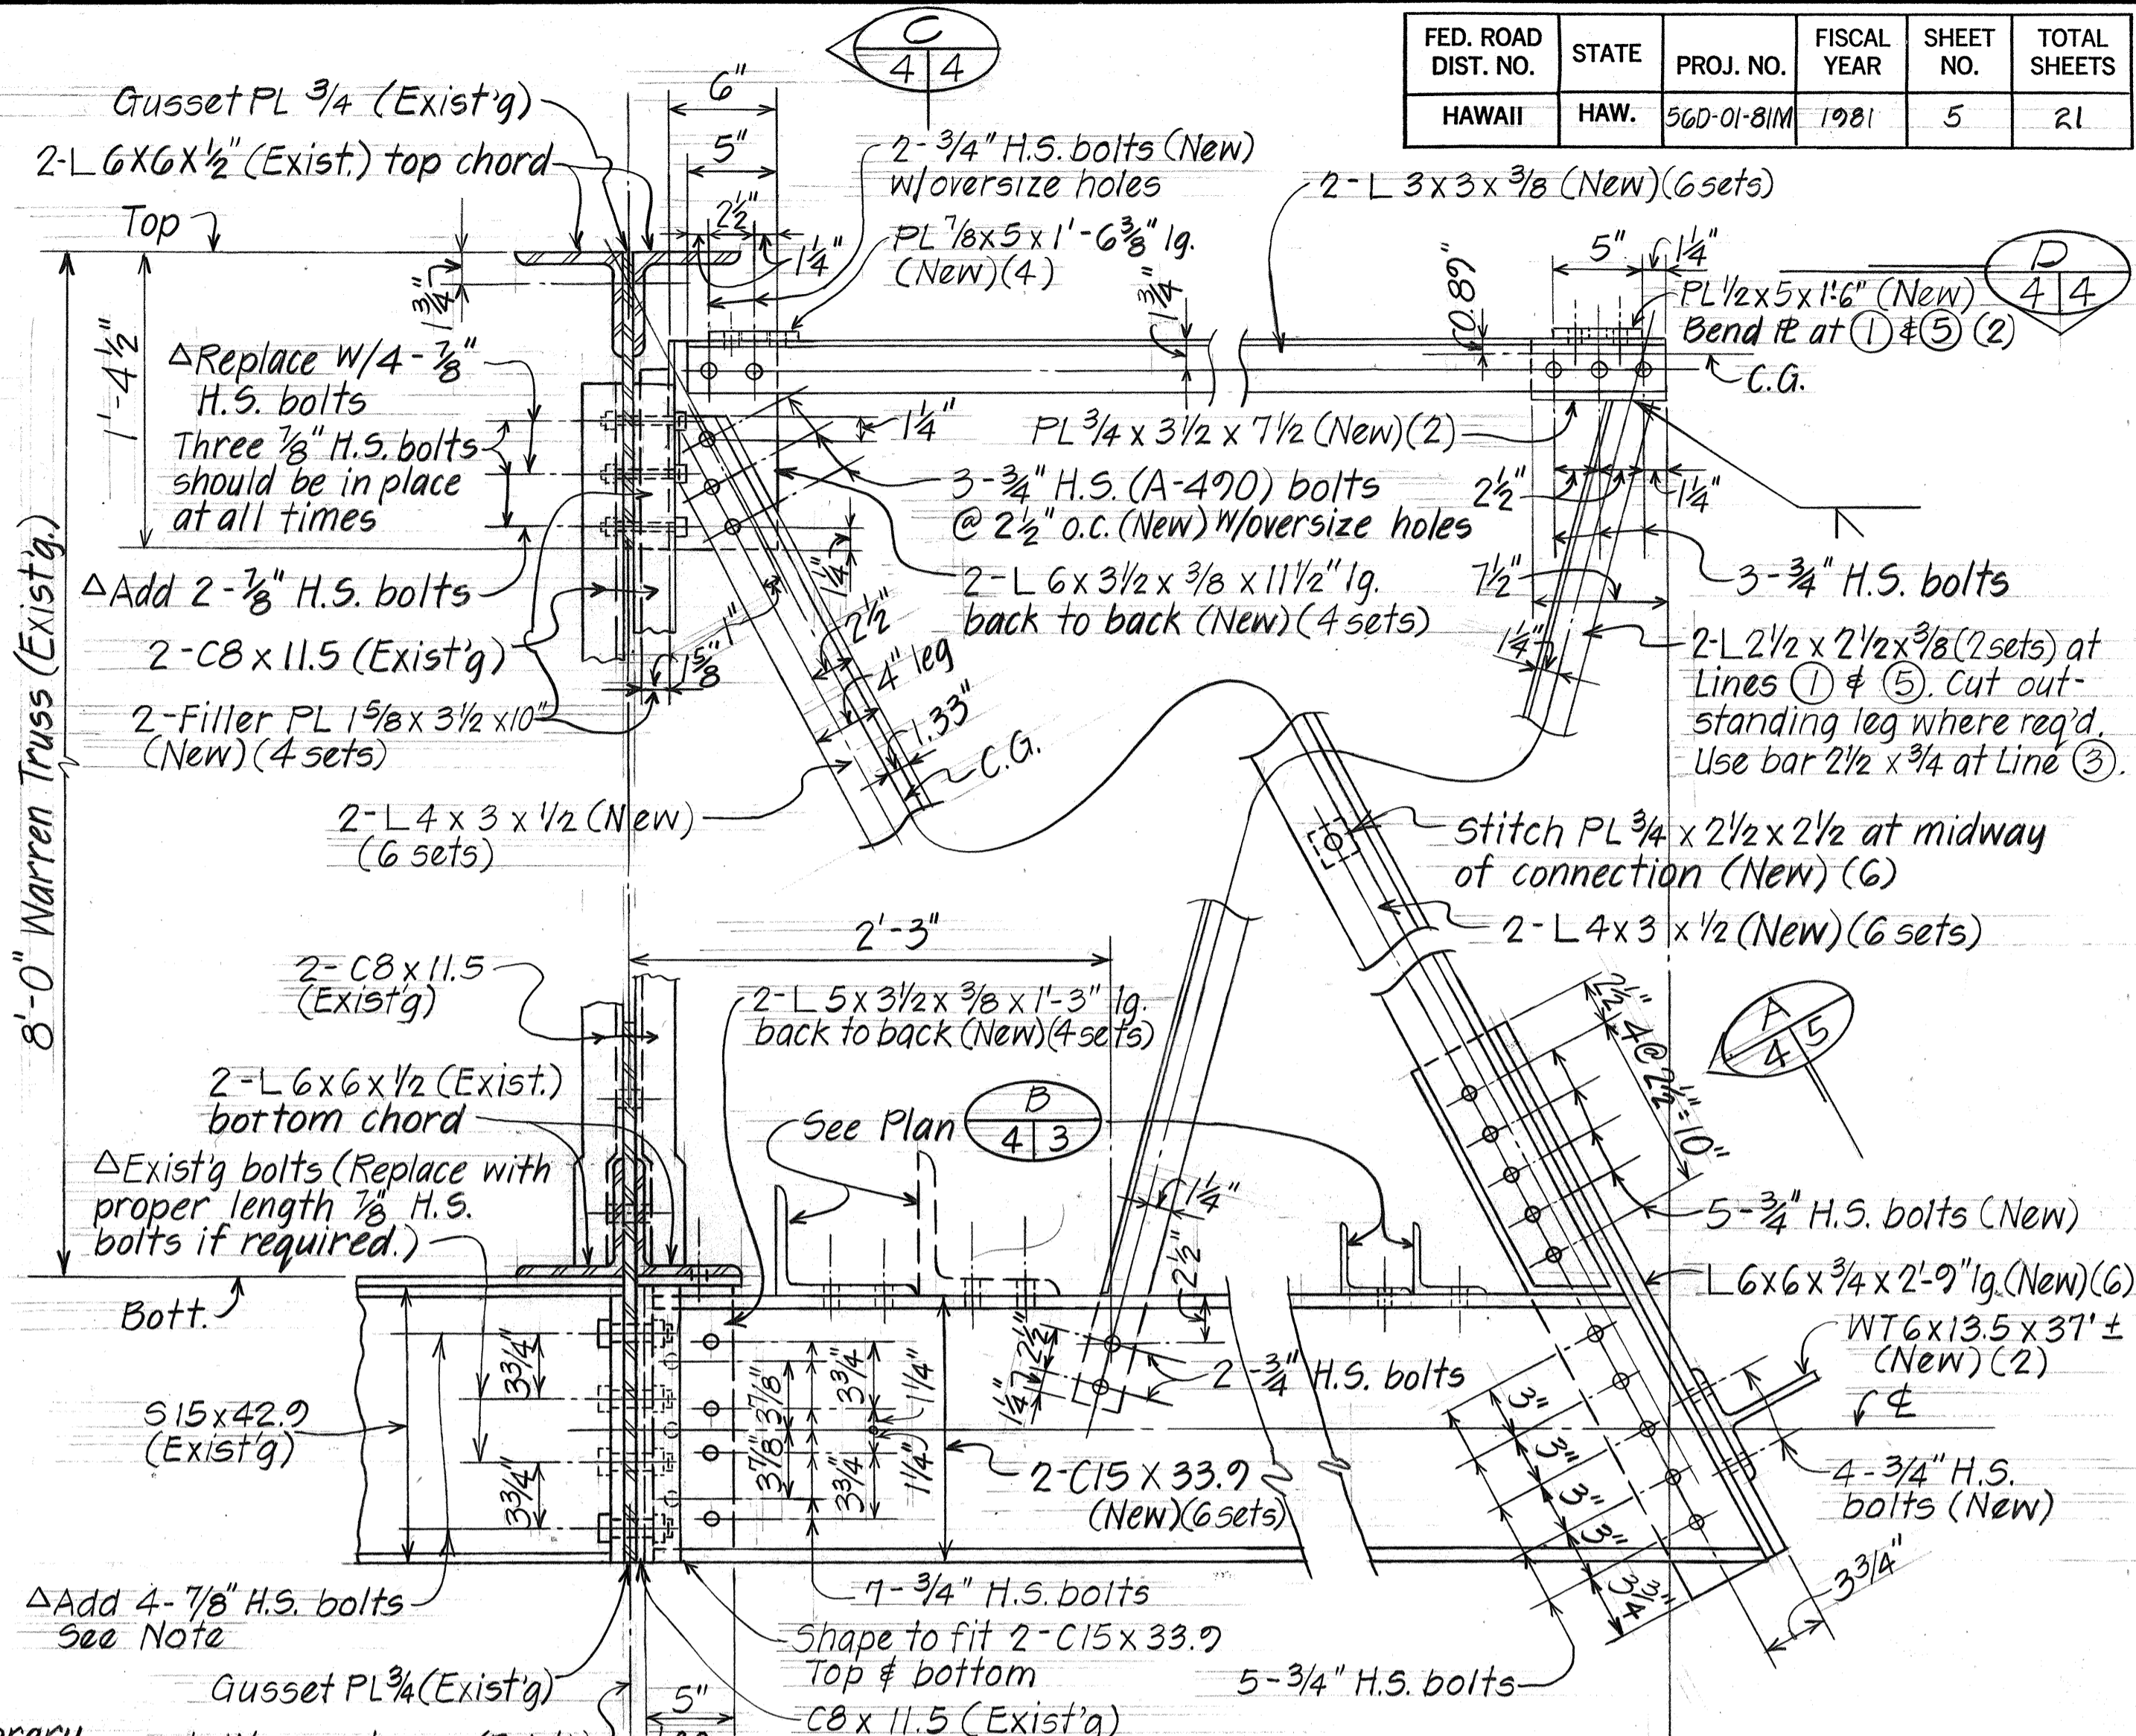 FED. ROAD DIST. NO.
STATE
PROJ. NO.
FISCAL YEAR
SHEET NO.
TOTAL SHEETS
HAWAII
HAW.
56D-01-81M
1981
5
21
C
4 4
6"
5"
2½"
1¼"
Gusset PL 3/4 (Exist'g)
2-L 6X6X½" (Exist.) top chord
Top
1¾"
2-3/4" H.S. bolts (New)
w/oversize holes
PL 7/8x5x1'-6 3/8" lg.
(New)(4)
2-L 3x3x3/8 (New)(6 sets)
1¾"
0.89"
5"
1¼"
D
4 4
PL 1/2x5x1'-6" (New)
Bend PL at ① & ⑤ (2)
C.G.
1'-4½"
8'-0" Warren Truss (Exist'g.)
△Replace W/4-7/8"
H.S. bolts
Three 7/8" H.S. bolts
should be in place
at all times
△Add 2-7/8" H.S. bolts
2-C8 x 11.5 (Exist'g)
2-Filler PL 1 5/8 x 3 1/2 x10"
(New)(4 sets)
1¼"
PL 3/4 x 3 1/2 x 7 1/2 (New)(2)
3-3/4" H.S. (A-490) bolts
@ 2½" o.c. (New) W/oversize holes
2-L 6 x 3 1/2 x 3/8 x 11 1/2" lg.
back to back (New)(4 sets)
2½"
1¼"
7½"
1¼"
3-3/4" H.S. bolts
2-L 2 1/2 x 2 1/2 x 3/8 (2 sets) at
Lines ① & ⑤. Cut out-
standing leg where req'd.
Use bar 2 1/2 x 3/4 at Line ③.
1¼"
1"
1 5/8"
2½"
4" leg
1.33"
C.G.
2-L 4 x 3 x 1/2 (New)
(6 sets)
Stitch PL 3/4 x 2 1/2 x 2 1/2 at midway
of connection (New) (6)
2-L 4x3 x 1/2 (New)(6 sets)
2'-3"
2-C8 x 11.5
(Exist'g)
2-L 5x 3 1/2 x 3/8 x 1'-3" lg.
back to back (New)(4 sets)
2½"
4@2½"=10"
A
4 5
2-L 6x6x 1/2 (Exist.)
bottom chord
See Plan
B
4 3
△Exist'g bolts (Replace with
proper length 7/8" H.S.
bolts if required.)
1¼"
2½"
5-3/4" H.S. bolts (New)
L 6x6x 3/4 x 2'-9" lg. (New)(6)
Bott.
WT 6x13.5 x 37' ±
(New) (2)
℄
3¾"
3¾"
3 7/8"
3 7/8"
3¾"
3¾"
1¼"
1¼"
2½"
1¼"
2-3/4" H.S. bolts
S 15x42.9
(Exist'g)
2-C15 X 33.9
(New)(6 sets)
3"
3"
3"
3"
3¾"
4-3/4" H.S.
bolts (New)
3 3/4"
△Add 4-7/8" H.S. bolts
See Note
7-3/4" H.S. bolts
Shape to fit 2-C15 x 33.9
Top & bottom
Gusset PL 3/4 (Exist'g)
5"
C8 x 11.5 (Exist'g)
5-3/4" H.S. bolts